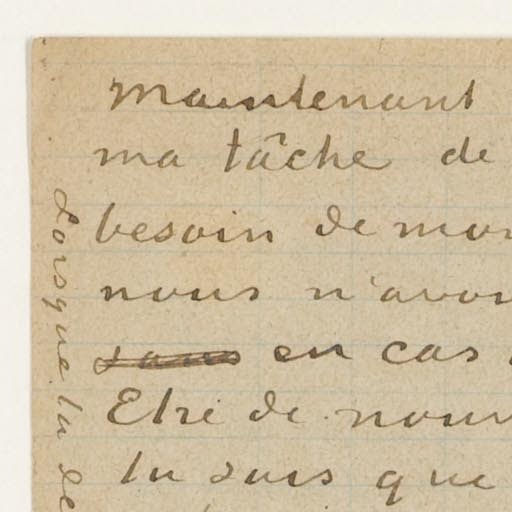 maintenant
ma tâche de
besoin de mon
nous n'avon
sans en cas
Etre de nouv
tu sais que
Lorsque la se